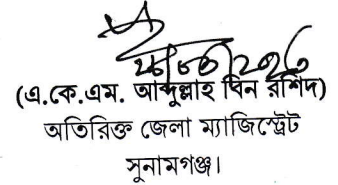 (এ.কে.এম. আব্দুল্লাহ বিন রশিদ)
অতিরিক্ত জেলা ম্যাজিস্ট্রেট
সুনামগঞ্জ।